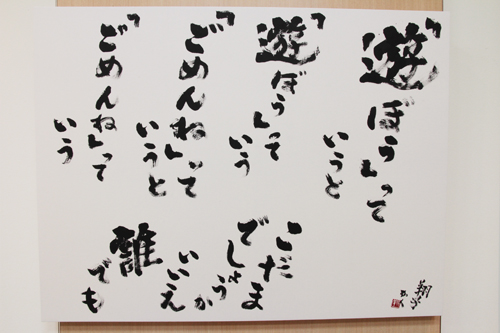 「遊ぼう」って
いうと
「遊ぼう」って
いう
「ごめんね」って
いうと
「ごめんね」って
いう
こだま
でしょうか
いいえ
誰
でも
翔子